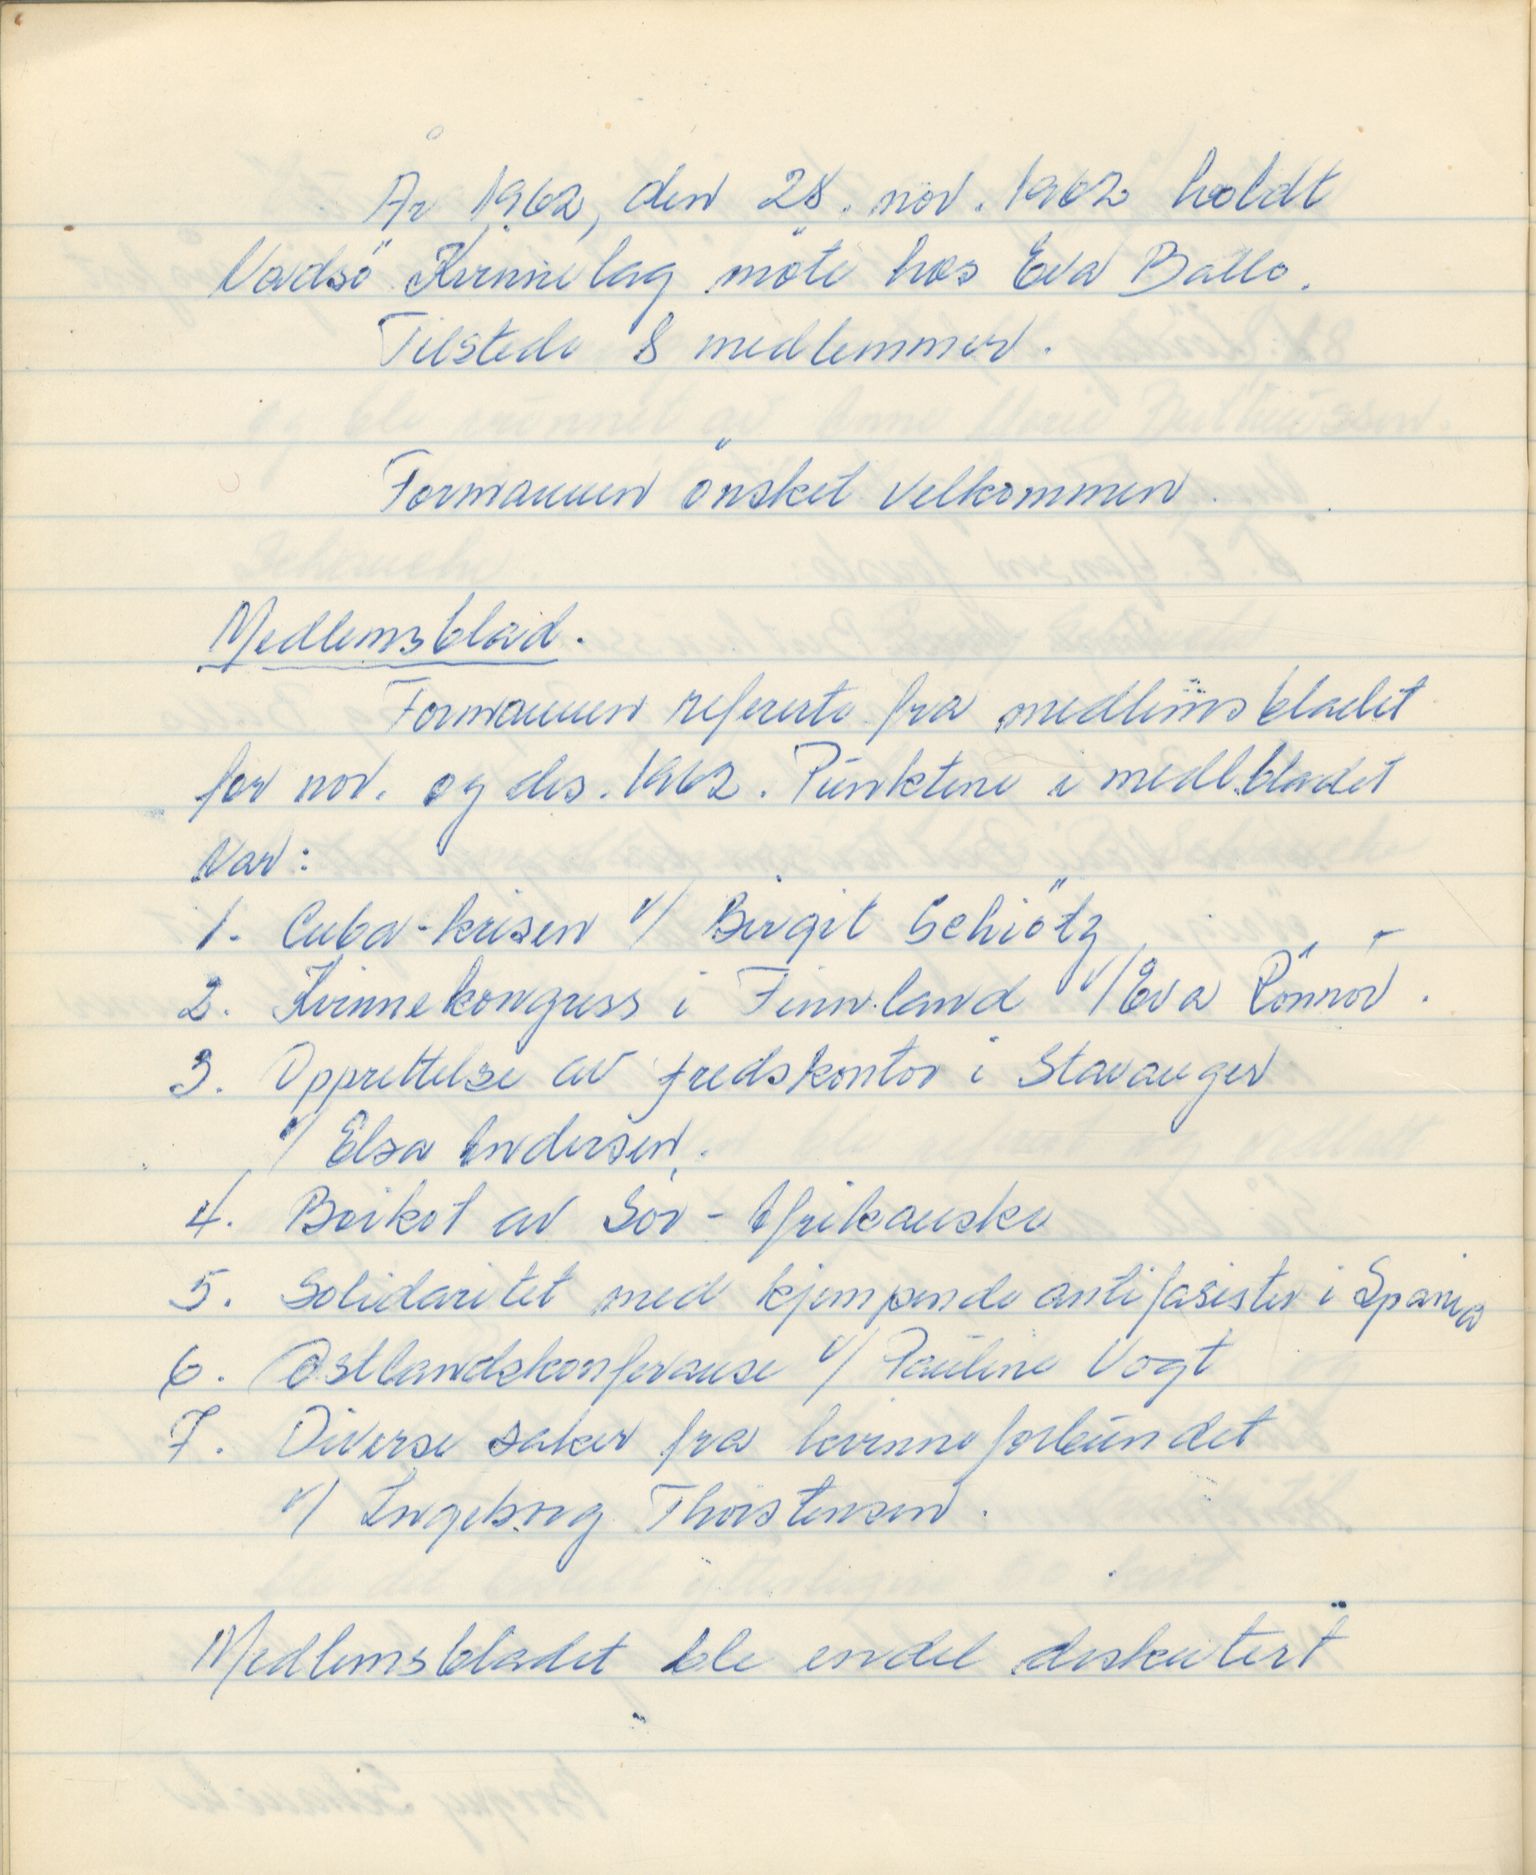 År 1962, den 28. nov. 1962 holdt
Vadsö Kvinnelag möte hos Eva Ballo.
Tilstede 8 medlemmer.
Formannen önsket velkommen.
Medlemsblad.
Formannen refererte fra medlemsbladet
for nov. og des. 1962. Punktene i medl.bladet
var:
1. Cuba-krisen v/ Birgit Schiötz
2. Kvinnekongress i Finnland v/ Eva Rönnov.
3. Opprettelse av fredskontor i Stavanger
v/ Elsa Andersen.
4. Boikot av Sör-Afrikanske
5. Solidaritet med kjempende antifasister i Spania
6. Östlandskonferanse v/ Pauline Vogt
7. Diverse saker fra kvinneforbundet
v/ Ingeborg Thorstensen.
Medlemsbladet ble endel diskutert